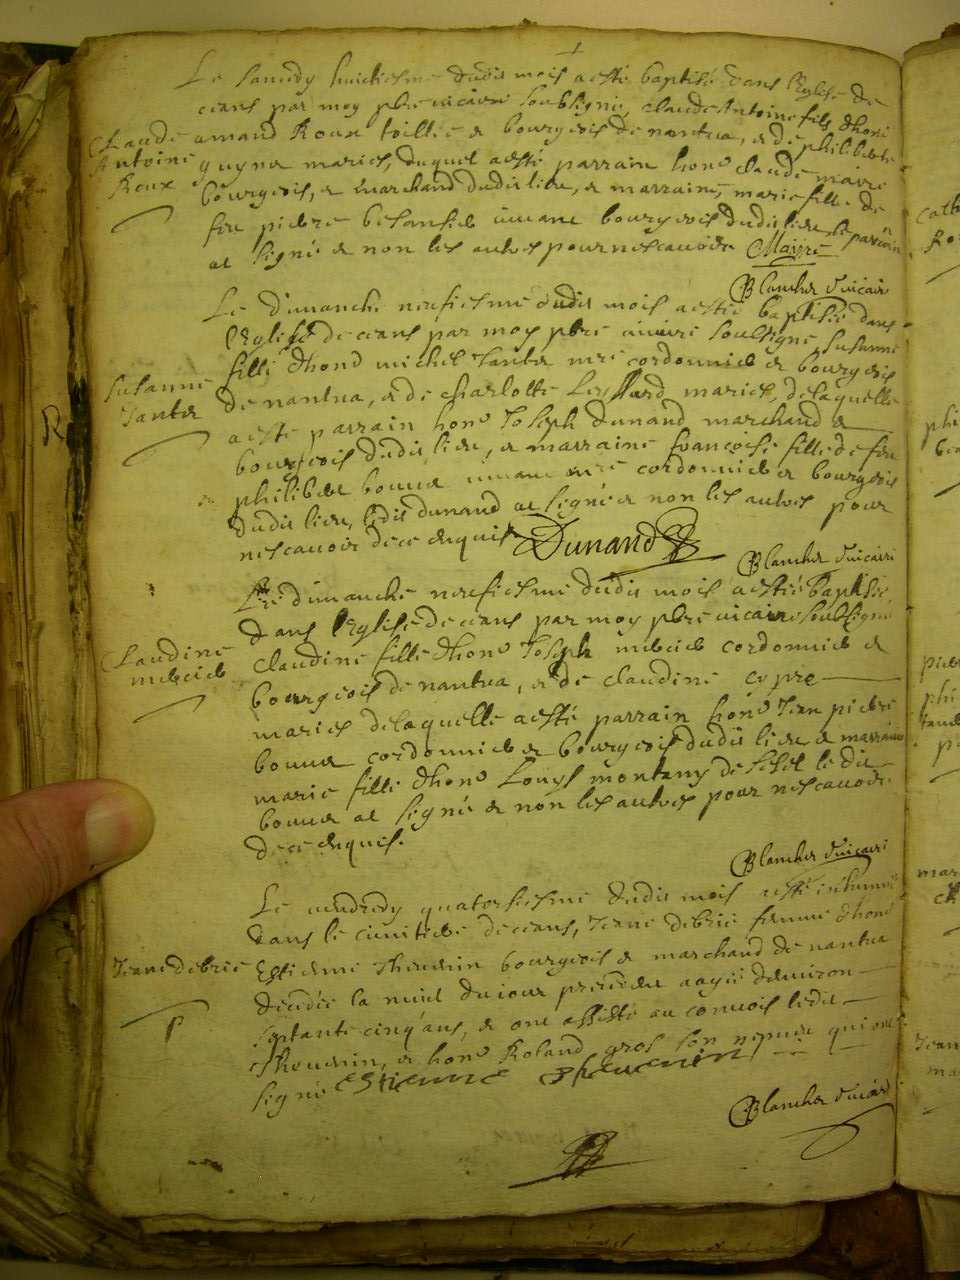 Le samedy huictiesme dudit mois a esté baptisé dans l'Eglise de
ceans par moy pbre vicaire soubsigné, Claude Antoine fils d'honé
Claude
Antoine
Roux
amand Roux toillier & bourgeois de nantua, & de philiberte
guynet mariés, duquel a esté parrain honé claude maire
bourgeois, & marchand dudit lieu, & marraine, marie fille de
feu pierre vivant bourgeois dudit lieu le parrain
at signé & non les autres pour ne scavoir Maire
Blanchet vicaire
Le dimanche neufiesme dudit mois a esté baptisée dans
l'Eglise de ceans par moy pbre vicaire soubsigné, susanne
Susanne
Tantet
fille d'honé michel Tantet mre cordonnier & bourgeois
de nantua, & de charlotte mariés, de laquelle
a esté parrain honé Joseph dunand marchand &
bourgeois dudit lieu, & marraine francoise fille de feu
philibert bouvet vivant mre cordonnier & bourgeois
dudit lieu, ledit dunand at signé & non les autres pour
ne scavoir de ce enquis Dunand
Blanchet vicaire
Le dimanche neufiesme dudit mois a esté baptisée
dans l'Eglise de ceans par moy pbre vicaire soubsigné
Claudine
mercier
claudine fille d'honé Joseph mercier cordonnier &
bourgeois de nantua, & de claudine copre
mariés de laquelle a esté parrain honé Jean pierre
bouvet cordonnier & bourgeois dudit lieu & marraine
marie fille d'honé Louys montany de ledit
bouvet at signé & non les autres pour ne scavoir
de ce enquis.
Blanchet vicaire
Le vendredy quatorsiesme dudit mois a esté inhumée
dans le cimitiere de ceans, Jeane debrie femme d'honé
Jeane debrie
Estienne Thevenin bourgeois & marchand de nantua
decedée la nuict du jour precedent aagée d'environ
septante cinq ans, & ont assisté au convois ledit
Thevenin, & honé Roland gros son nepveu qui ont
signé Estienne Thevenin
Blanchet vicaire